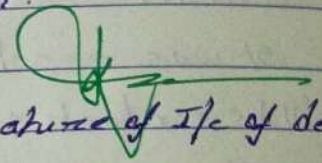 ature of I/c of de